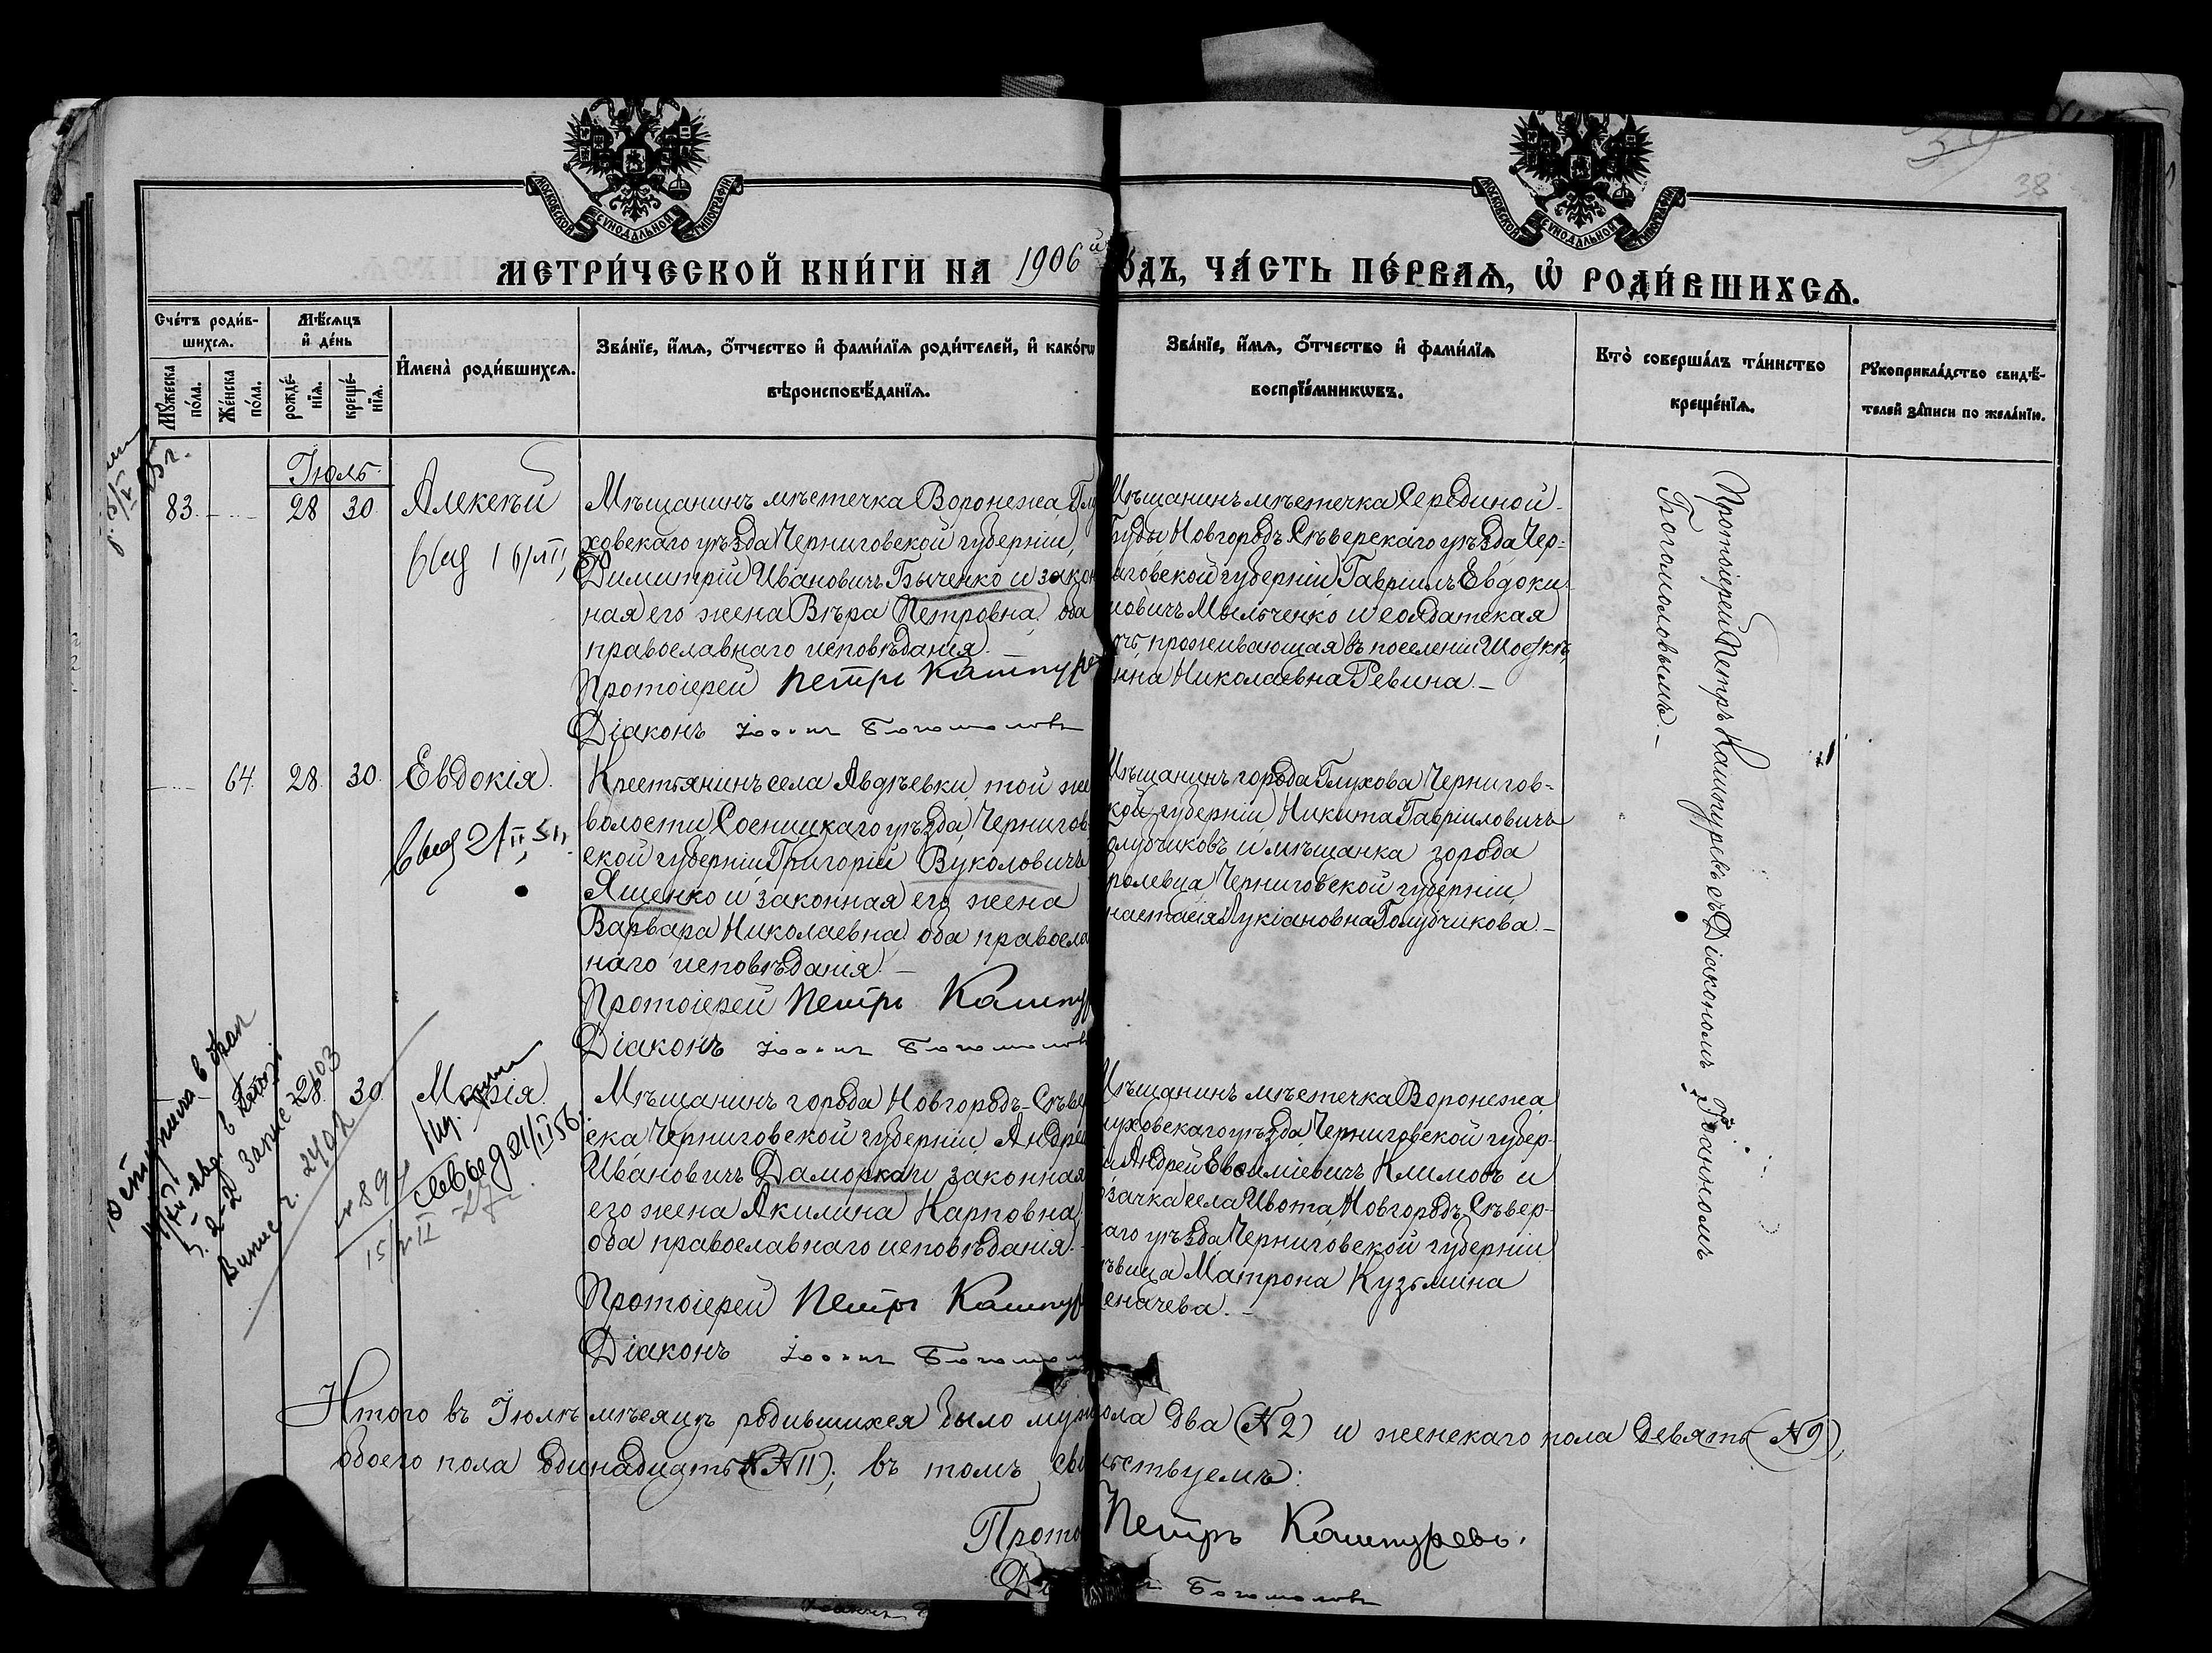 МОСКОВСКОЙ СѴНОДАЛЬНОЙ ТИПОГРАФІИ
МОСКОВСКОЙ СѴНОДАЛЬНОЙ ТИПОГРАФІИ
38
МЕТРИ́ЧЕСКОЙ КНИ́ГИ НА 1906й
О́ДЪ, ЧА́СТЬ ПЕ́РВАѦ, Ѡ҆ РОДИ́ВШИХСѦ.
Сче́тъ роди́в-
шихсѧ.
Мѣ́сѧцъ
и҆ де́нь
Мꙋ́жеска
по́ла.
Же́нска
по́ла.
рожде́-
нїѧ.
креще́-
нїѧ.
И҆мена̀ роди́вшихсѧ.
Зва́нїе, и҆́мѧ, ѻ҆́тчество и҆ фами́лїѧ роди́телей, и҆ како́гѡ
вѣроисповѣ́данїѧ.
Зва́нїе, и҆́мѧ, ѻ҆́тчество и҆ фами́лїѧ
воспрїе́мникѡвъ.
Кто̀ соверша́лъ та́инство
креще́нїѧ.
Рꙋкоприкла́дство свидѣ́-
телей за́писи по жела́нїю.
Іюль.
83. 28 30 Алексѣй
Мѣщанинъ мѣстечка Воронежа, Глу
ховскаго уѣзда Черниговской губерніи,
Димитрій Ивановичъ Быченко и закон
ная его жена Вѣра Петровна, оба
православнаго исповѣданія. —
Протоіерей Петръ Кашпурев
Діаконъ Іоаннъ Богомоловъ
Мѣщанинъ мѣстечка Середино́й-
Буды Новгородъ Сѣверскаго уѣзда Чер-
иговской губерніи Гавріилъ Евдоки-
мовичъ Мыльченко и солдатская
очь проживающая въ поселеніи Шосткѣ,
нна Николаевна Ревина. —
Протоіерей Петръ Кашпуревъ съ Діакономъ Іоанномъ
Богомоловымъ. —
64. 28. 30. Евдокія.
Крестьянинъ села Авдѣевки, той же
волости, Сосницкаго уѣзда, Чернигов-
ской губерніи Григорій Вуколовичъ
Ященко и законная его жена
Варвара Николаевна, оба правосла
наго исповѣданія. —
Протоіерей Петръ Кашпур
Діаконъ Іоаннъ Богомолов
Мѣщанинъ города Глухова Чернигов-
кой губерніи Никита Гавріиловичъ
олубчиковъ и мѣщанка города
ролевца Черниговской губерніи
настасія Лукіановна Голубчикова. —
28. 30 Марія.
Мѣщанинъ города Новгородъ-Сѣве
ска Черниговской губерніи, Андрей
Ивановичъ Даморкаи законная
его жена Акилина Карповна,
оба православнаго исповѣданія. —
Протоіерей Петръ Кашпур
Діаконъ Іоаннъ Богомол
Мѣщанинъ мѣстечка Воронежа
луховскаго уѣзда, Черниговской губер-
и Андрей Евфиміевичъ Климовъ и
озачка села Ивота, Новгородъ-Сѣвер-
каго уѣзда, Черниговской губерніи
ѣвица Матрона Кузьмина
еначева. —
Итого въ Іюлѣ мѣсяцѣ родившихся было муж пола два (№2) и женскаго пола девять (№9),
обоего пола одинадцать (№№11); въ томъ сви ѣтствуемъ:
Прото Петръ Кашпуревъ.
Ді ъ Богомоловъ